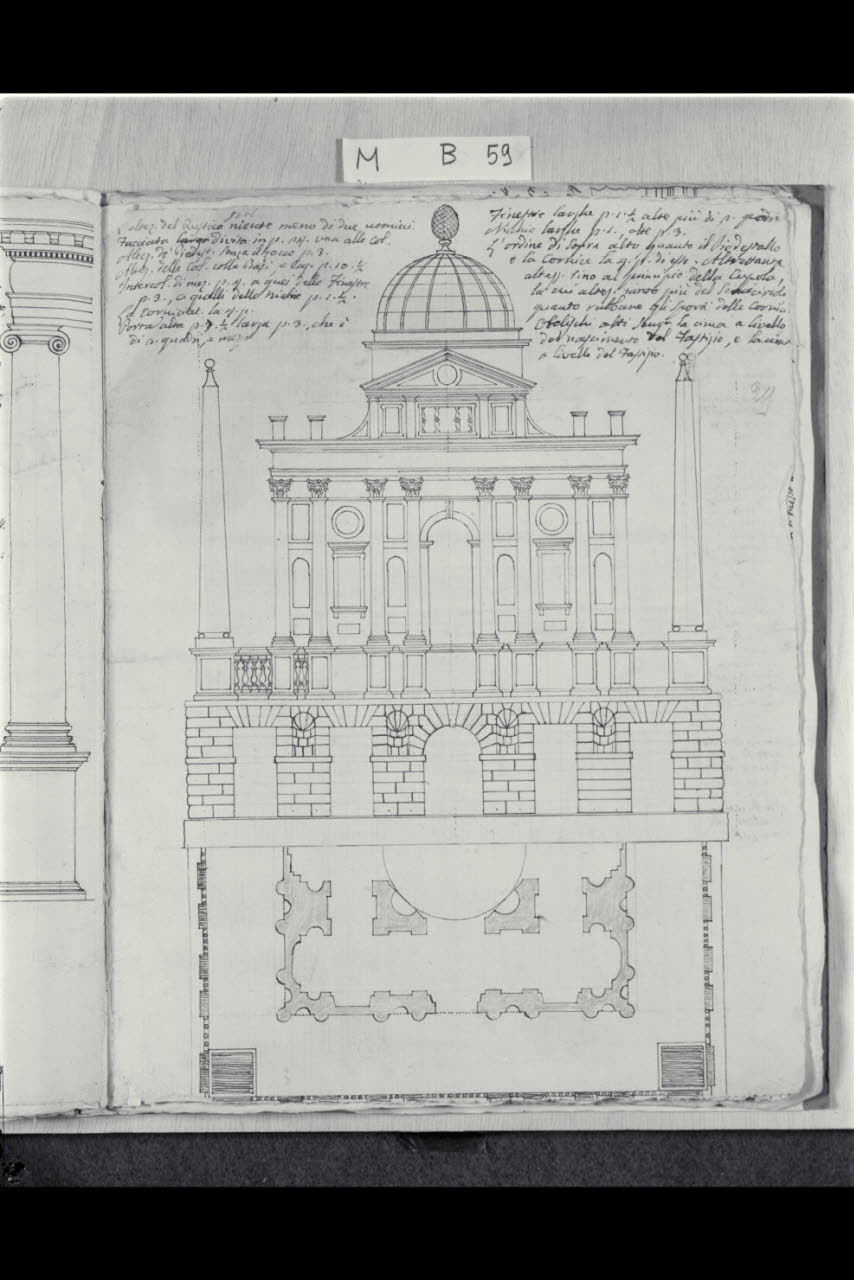 M B 59
altez. del Rustico niente meno di due uomini
Facciata largo divisa in p. 24. una alle Col.
Altez. de Piedest. senza il zocco p. 3.
Altez. delle Col. colla Basi, e Cap. p. 10. ½
Intercol. di mez. p. 4. a quei delle Finestre
p. 3., a quelli delle nichie p. 1. ½.
La Corniciat. la
Porta alta p. 7. ½ larga p. 3., che è
di 2. quadri, e mezo
Finestre larghe p. 1. ½ alte più di 2. quadri
Nichie larghe p. 1., alte p. 3.
L'ordine di sopra alto quanto il Piedestallo
e la Cornice la di
altez. sino al principio della Cupola,
la cui altez. sarà più del Semicircolo
quanto rubbano gli sporti delle Cornici
Obelischi alti senza la cima a livello
del nascimento del Fastigio, e la cima
a livello del Fastigio.